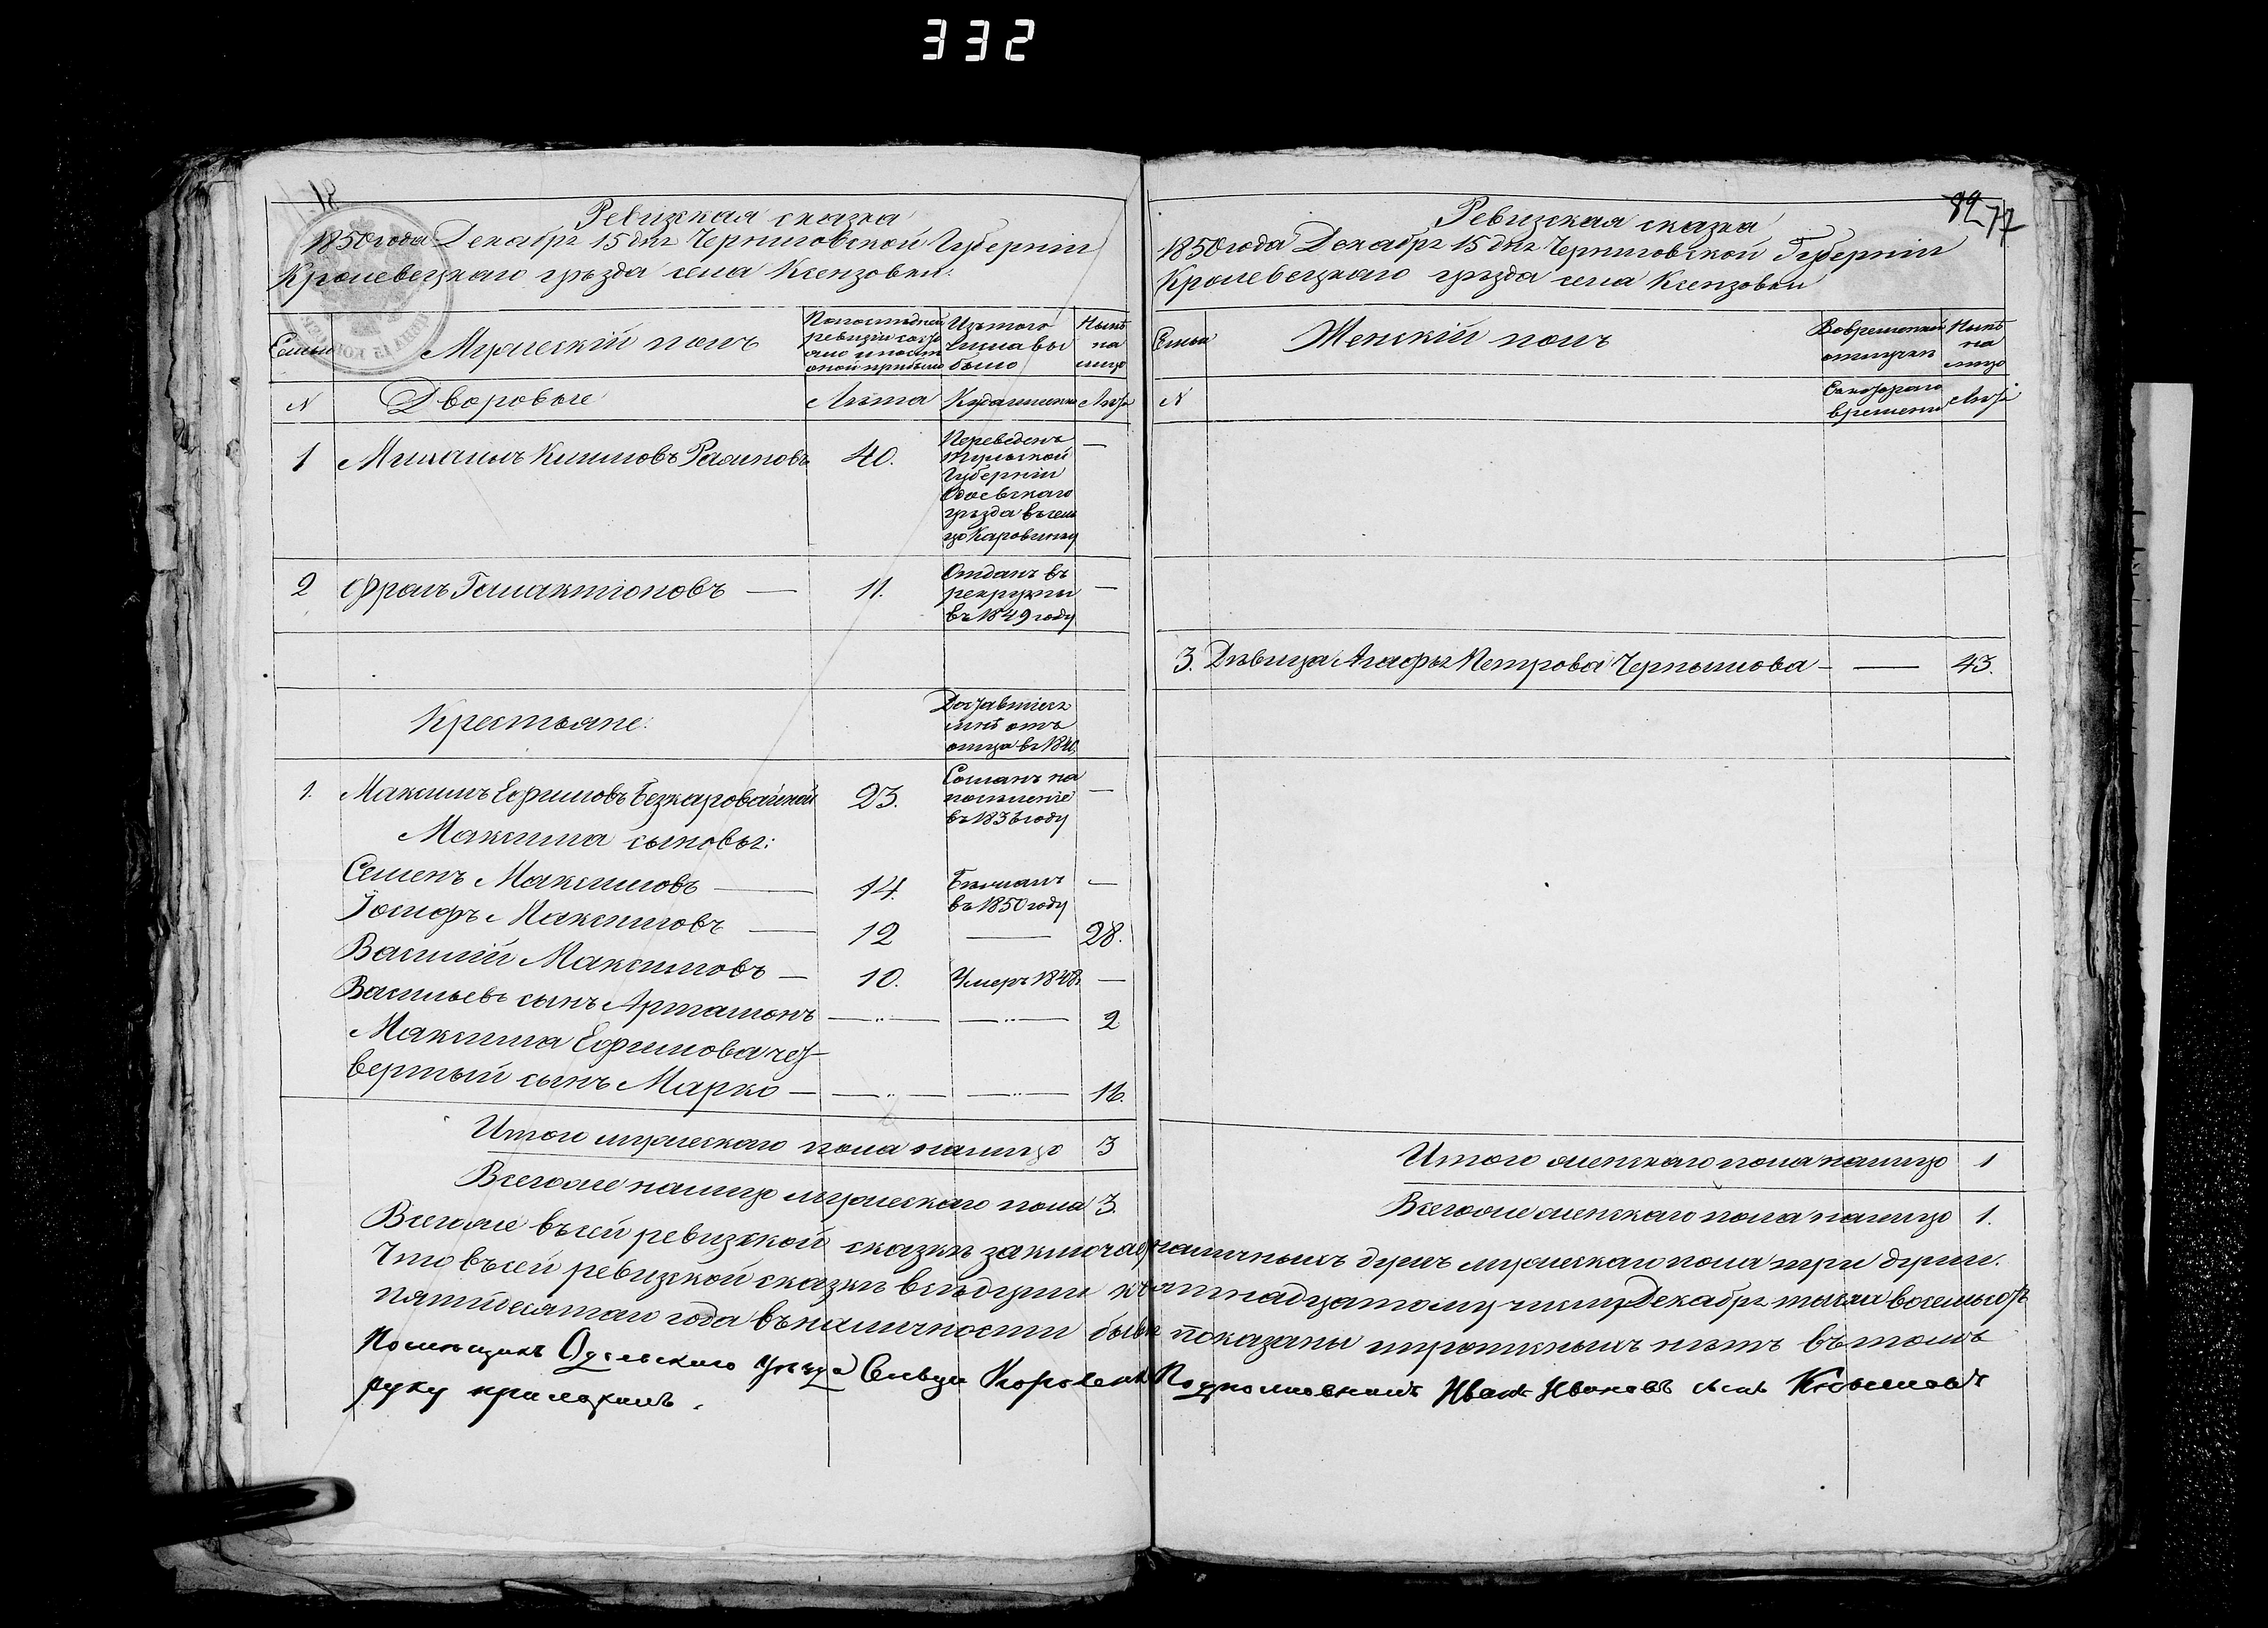 332
Ревизская сказка
1850 года Декабря 15 дня Черниговской Губерніи
Кролевецкаго уѣзда села Ксензовки.
Семьи
Мужескій полъ
По последней
ревизіи состо
яло и посл
оной прибыло
Изъ того
числа вы
было
Нынѣ
на
лицо
N
Дворовые
Лѣта
Когда именно
Лѣта
1
Михаилъ Климовъ
40.
Переведенъ
Тульской
Губерніи
Одоевскаго
уѣзда въ сель
цо
—
2
Фролъ Галактіоновъ —
11.
Отданъ въ
рекруты
въ 1849 году
—
Крестьяне:
Доставшіеся
мнѣ отъ
отца въ
1.
Максимъ Ефимовъ Безкаровайной
23.
Сосланъ на
поселеніе
въ 1836 году
—
Максима сыновья:
Семенъ Максимовъ —
14.
Бѣжалъ
въ 1850 году
—
Іосифъ Максимовъ —
12
—
28.
Василій Максимовъ —
10.
Умеръ 1848
—
Васильевъ сынъ Артамонъ
2
Максима Ефимова чет
вертый сынъ Марко —
16.
Итого мужескаго пола налицо 3
Всегоже налицо мужескаго пола 3.
82
77
Ревизская сказка
1850 года Декабря 15 дня Черниговской Губерніи
Кролевецкаго уѣзда села Ксензовки
Семьи
Женскій полъ
Во временной
отлучке
Нынѣ
на
лицо
N
Съ котораго
времени
Лѣта
3. Дѣвица Агафья Петрова — — 43.
Итого женскаго пола налицо 1
Всегоже женскаго пола налицо 1.
Всегоже въ сей ревизской сказкѣ заключает наличныхъ душъ мужескаго пола три души.
Что въ сей ревизской сказкѣ все души къ пятнадцатому числу Декабря тысяча восемьсотъ
пятидесятаго года въ наличности бывшія показаны и прописныхъ нѣтъ въ томъ
Помѣщикъ уѣзда Сельца Подполковникъ Иванъ Ивановъ сынъ
руку приложилъ.